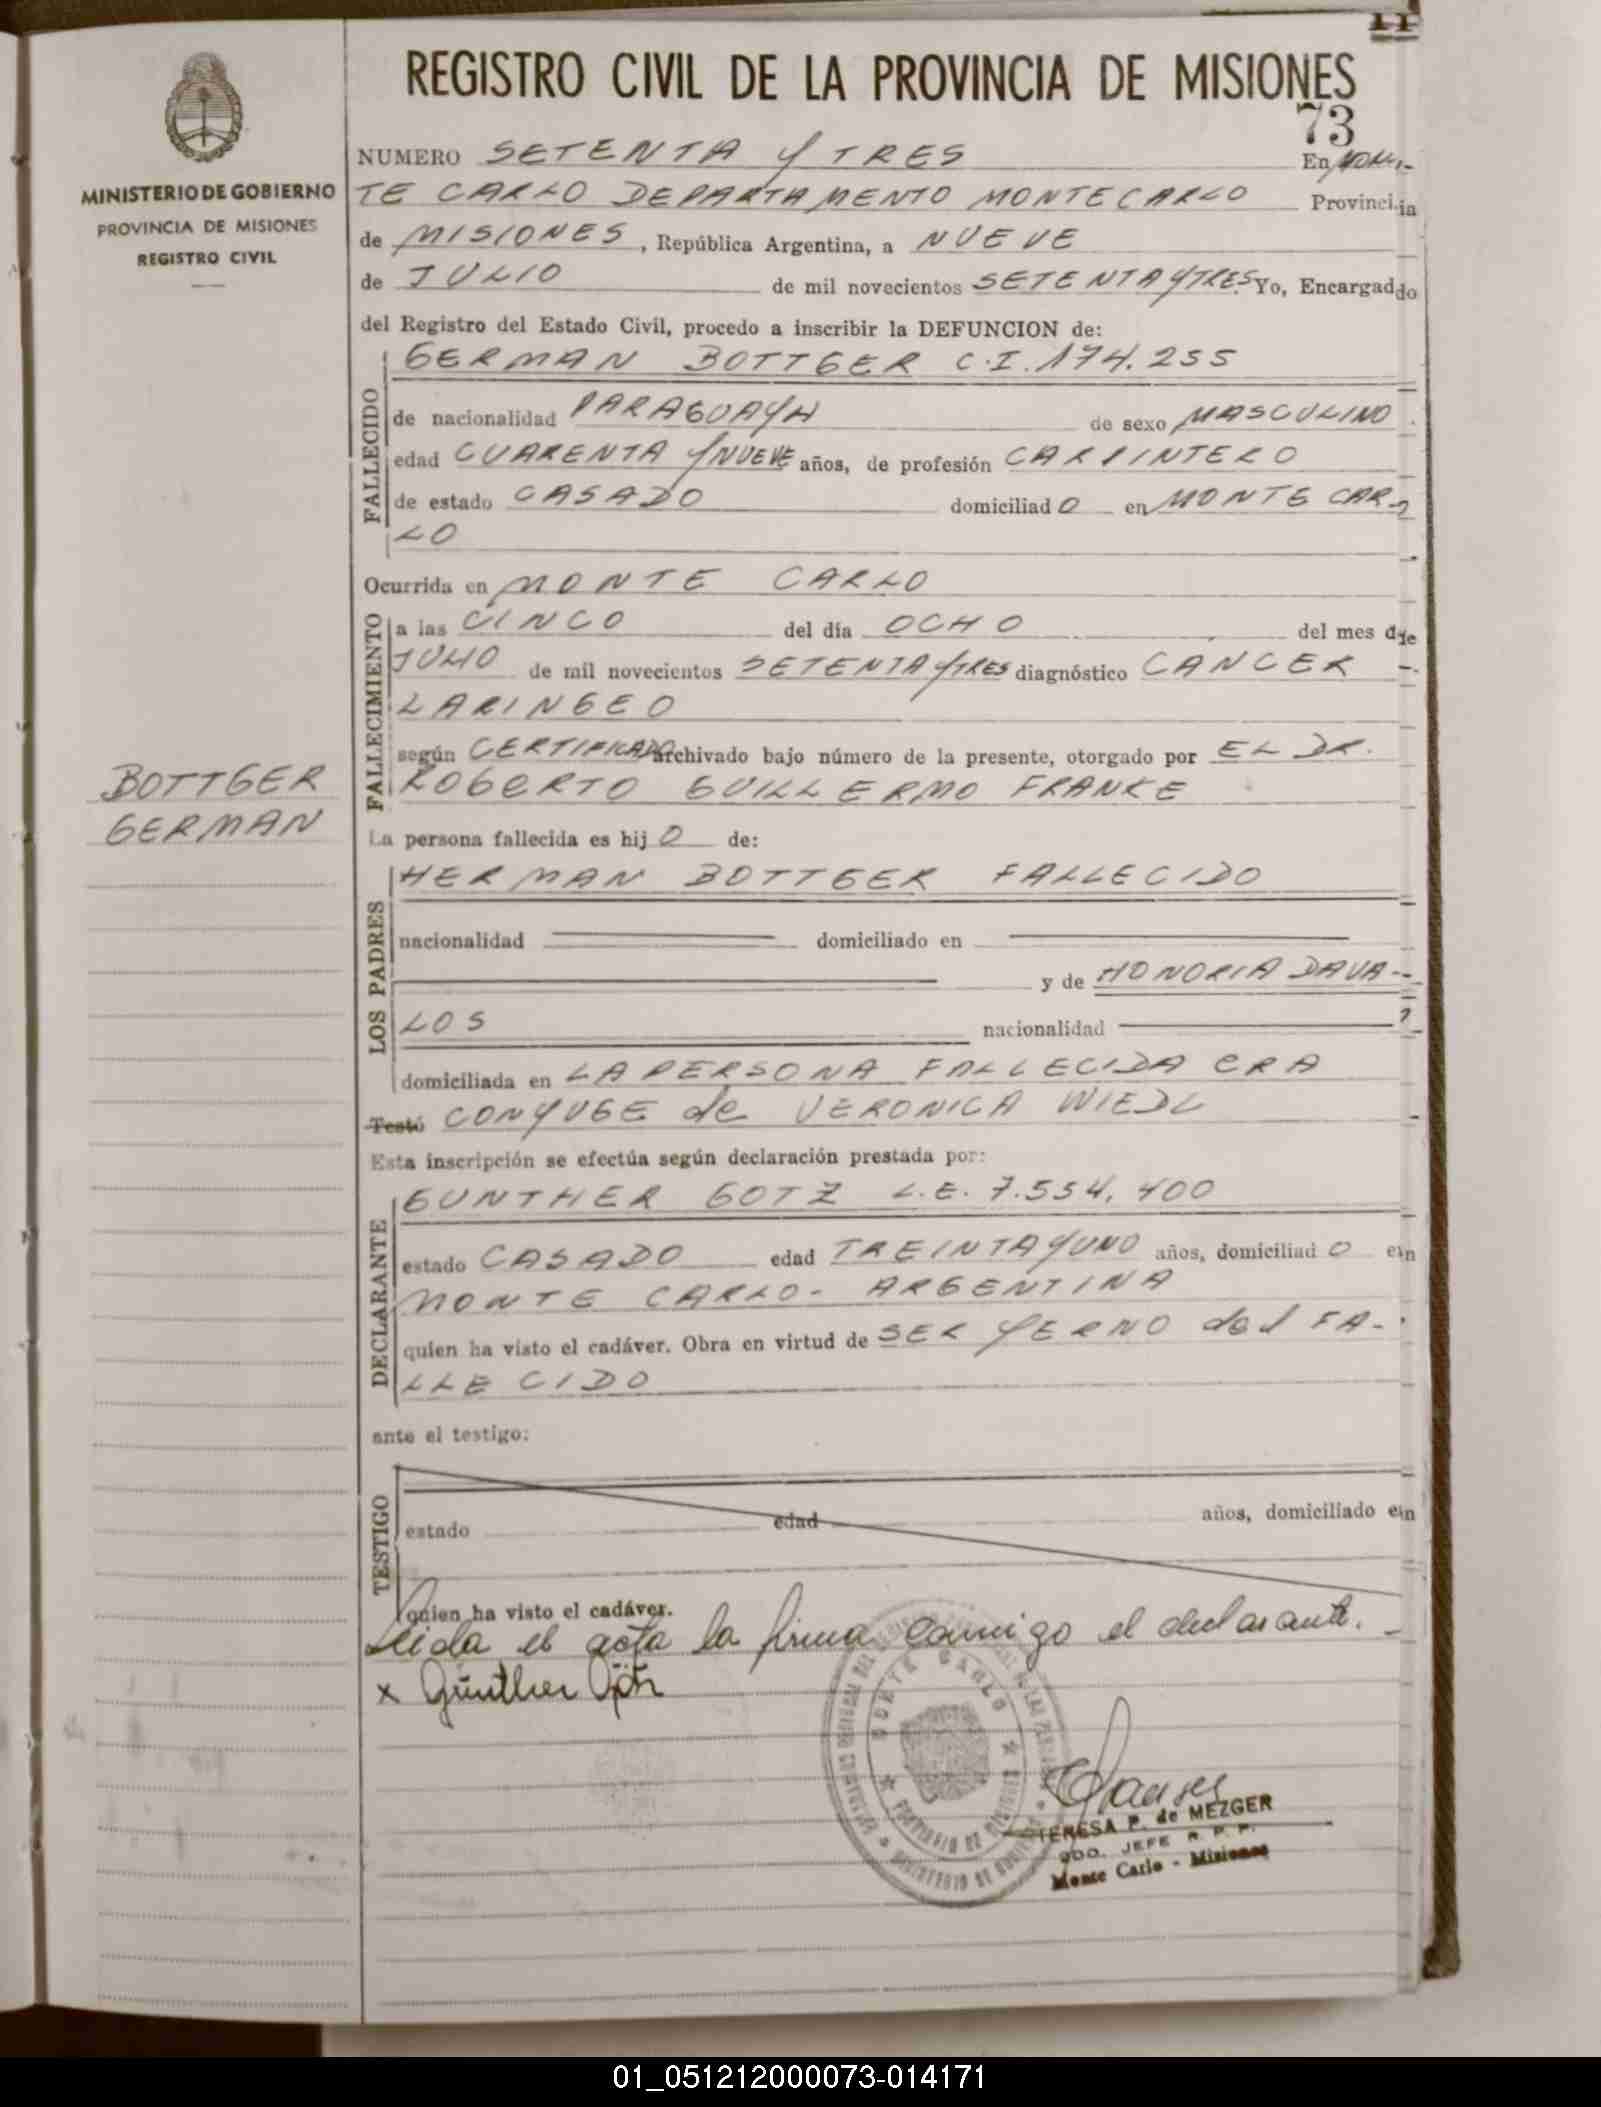 11
REGISTRO CIVIL DE LA PROVINCIA DE MISIONES
73
MINISTERIO DE GOBIERNO
PROVINCIA DE MISIONES
REGISTRO CIVIL
NUMERO SETENTA Y TRES En MON-
TE CARLO DEPARTAMENTO MONTECARLO Provincia
de MISIONES, República Argentina, a NUEVE
de JULIO de mil novecientos SETENTA Y TRES Yo, Encargado
del Registro del Estado Civil, procedo a inscribir la DEFUNCION de:
FALLECIDO
GERMAN BOTTGER C.I. 174.255
de nacionalidad PARAGUAYA de sexo MASCULINO
edad CUARENTA Y NUEVE años, de profesión CARPINTERO
de estado CASADO domiciliad O en MONTE CAR-
LO
Ocurrida en MONTE CARLO
FALLECIMIENTO
a las CINCO del día OCHO del mes de
JULIO de mil novecientos SETENTA Y TRES diagnóstico CANCER
LARINGEO
según CERTIFICADO archivado bajo número de la presente, otorgado por EL DR.
ROBERTO GUILLERMO FRANKE
BOTTGER
GERMAN
La persona fallecida es hij O de:
LOS PADRES
HERMAN BOTTGER FALLECIDO
nacionalidad domiciliado en
y de HONORIA DAVA-
LOS nacionalidad
domiciliada en LA PERSONA FALLECIDA ERA
Testó CONYUGE de VERONICA WIEDL
Esta inscripción se efectúa según declaración prestada por:
DECLARANTE
GUNTHER GOTZ L.E. 7.554.400
estado CASADO edad TREINTA Y UNO años, domiciliad O en
MONTE CARLO - ARGENTINA
quien ha visto el cadáver. Obra en virtud de SER YERNO del FA-
LLECIDO
ante el testigo:
TESTIGO
estado edad años, domiciliado en
quien ha visto el cadáver.
Leida el acta la firma conmigo el declarante.
x Günther Götz
MONTE CARLO
TERESA P. de MEZGER
JEFE R. P. P.
Monte Carlo - Misiones
01_051212000073-014171